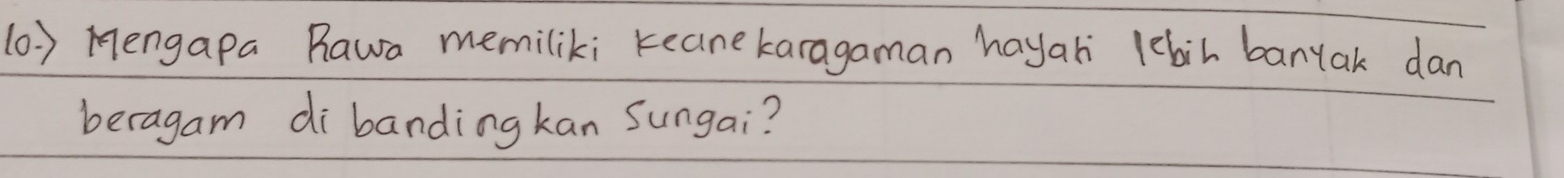 10.) Mengapa Rawa memiliki keanekaragaman hayati lebih banyak dan
beragam di bandingkan sungai?